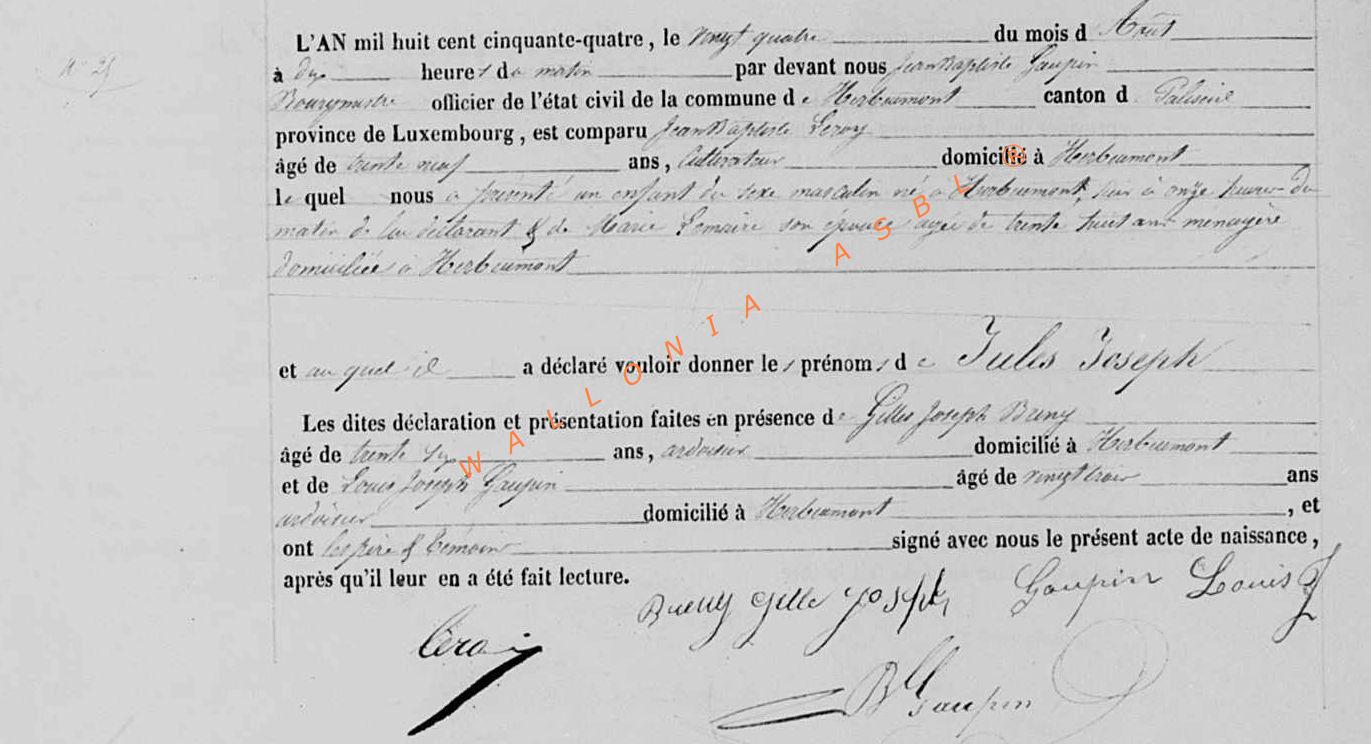 N° 25
L'AN mil huit cent cinquante-quatre, le vingt quatre du mois d'Août
à dix heures du matin par devant nous Jean Baptiste Gaupin
Bourgmestre officier de l'état civil de la commune de Herbeumont canton de Paliseul
province de Luxembourg, est comparu Jean Baptiste Leroy
âgé de trente neuf ans, cultivateur domicilié à Herbeumont
le quel nous a présenté un enfant du sexe masculin né à Herbeumont, hier à onze heures du
matin de lui déclarant & de Marie Lemaire son épouse agée de trente huit ans menagère
domiciliée à Herbeumont
et au quel il a déclaré vouloir donner les prénoms de Jules Joseph
Les dites déclaration et présentation faites en présence de Gilles Joseph
âgé de trente six ans, ardoisier domicilié à Herbeumont
et de Louis Joseph Gaupin âgé de vingt trois ans
ardoisier domicilié à Herbeumont, et
ont les père & témoins signé avec nous le présent acte de naissance,
après qu'il leur en a été fait lecture.
Gille joseph Gaupin Louis J
JB Gaupin
WALLONIA ASBL ®